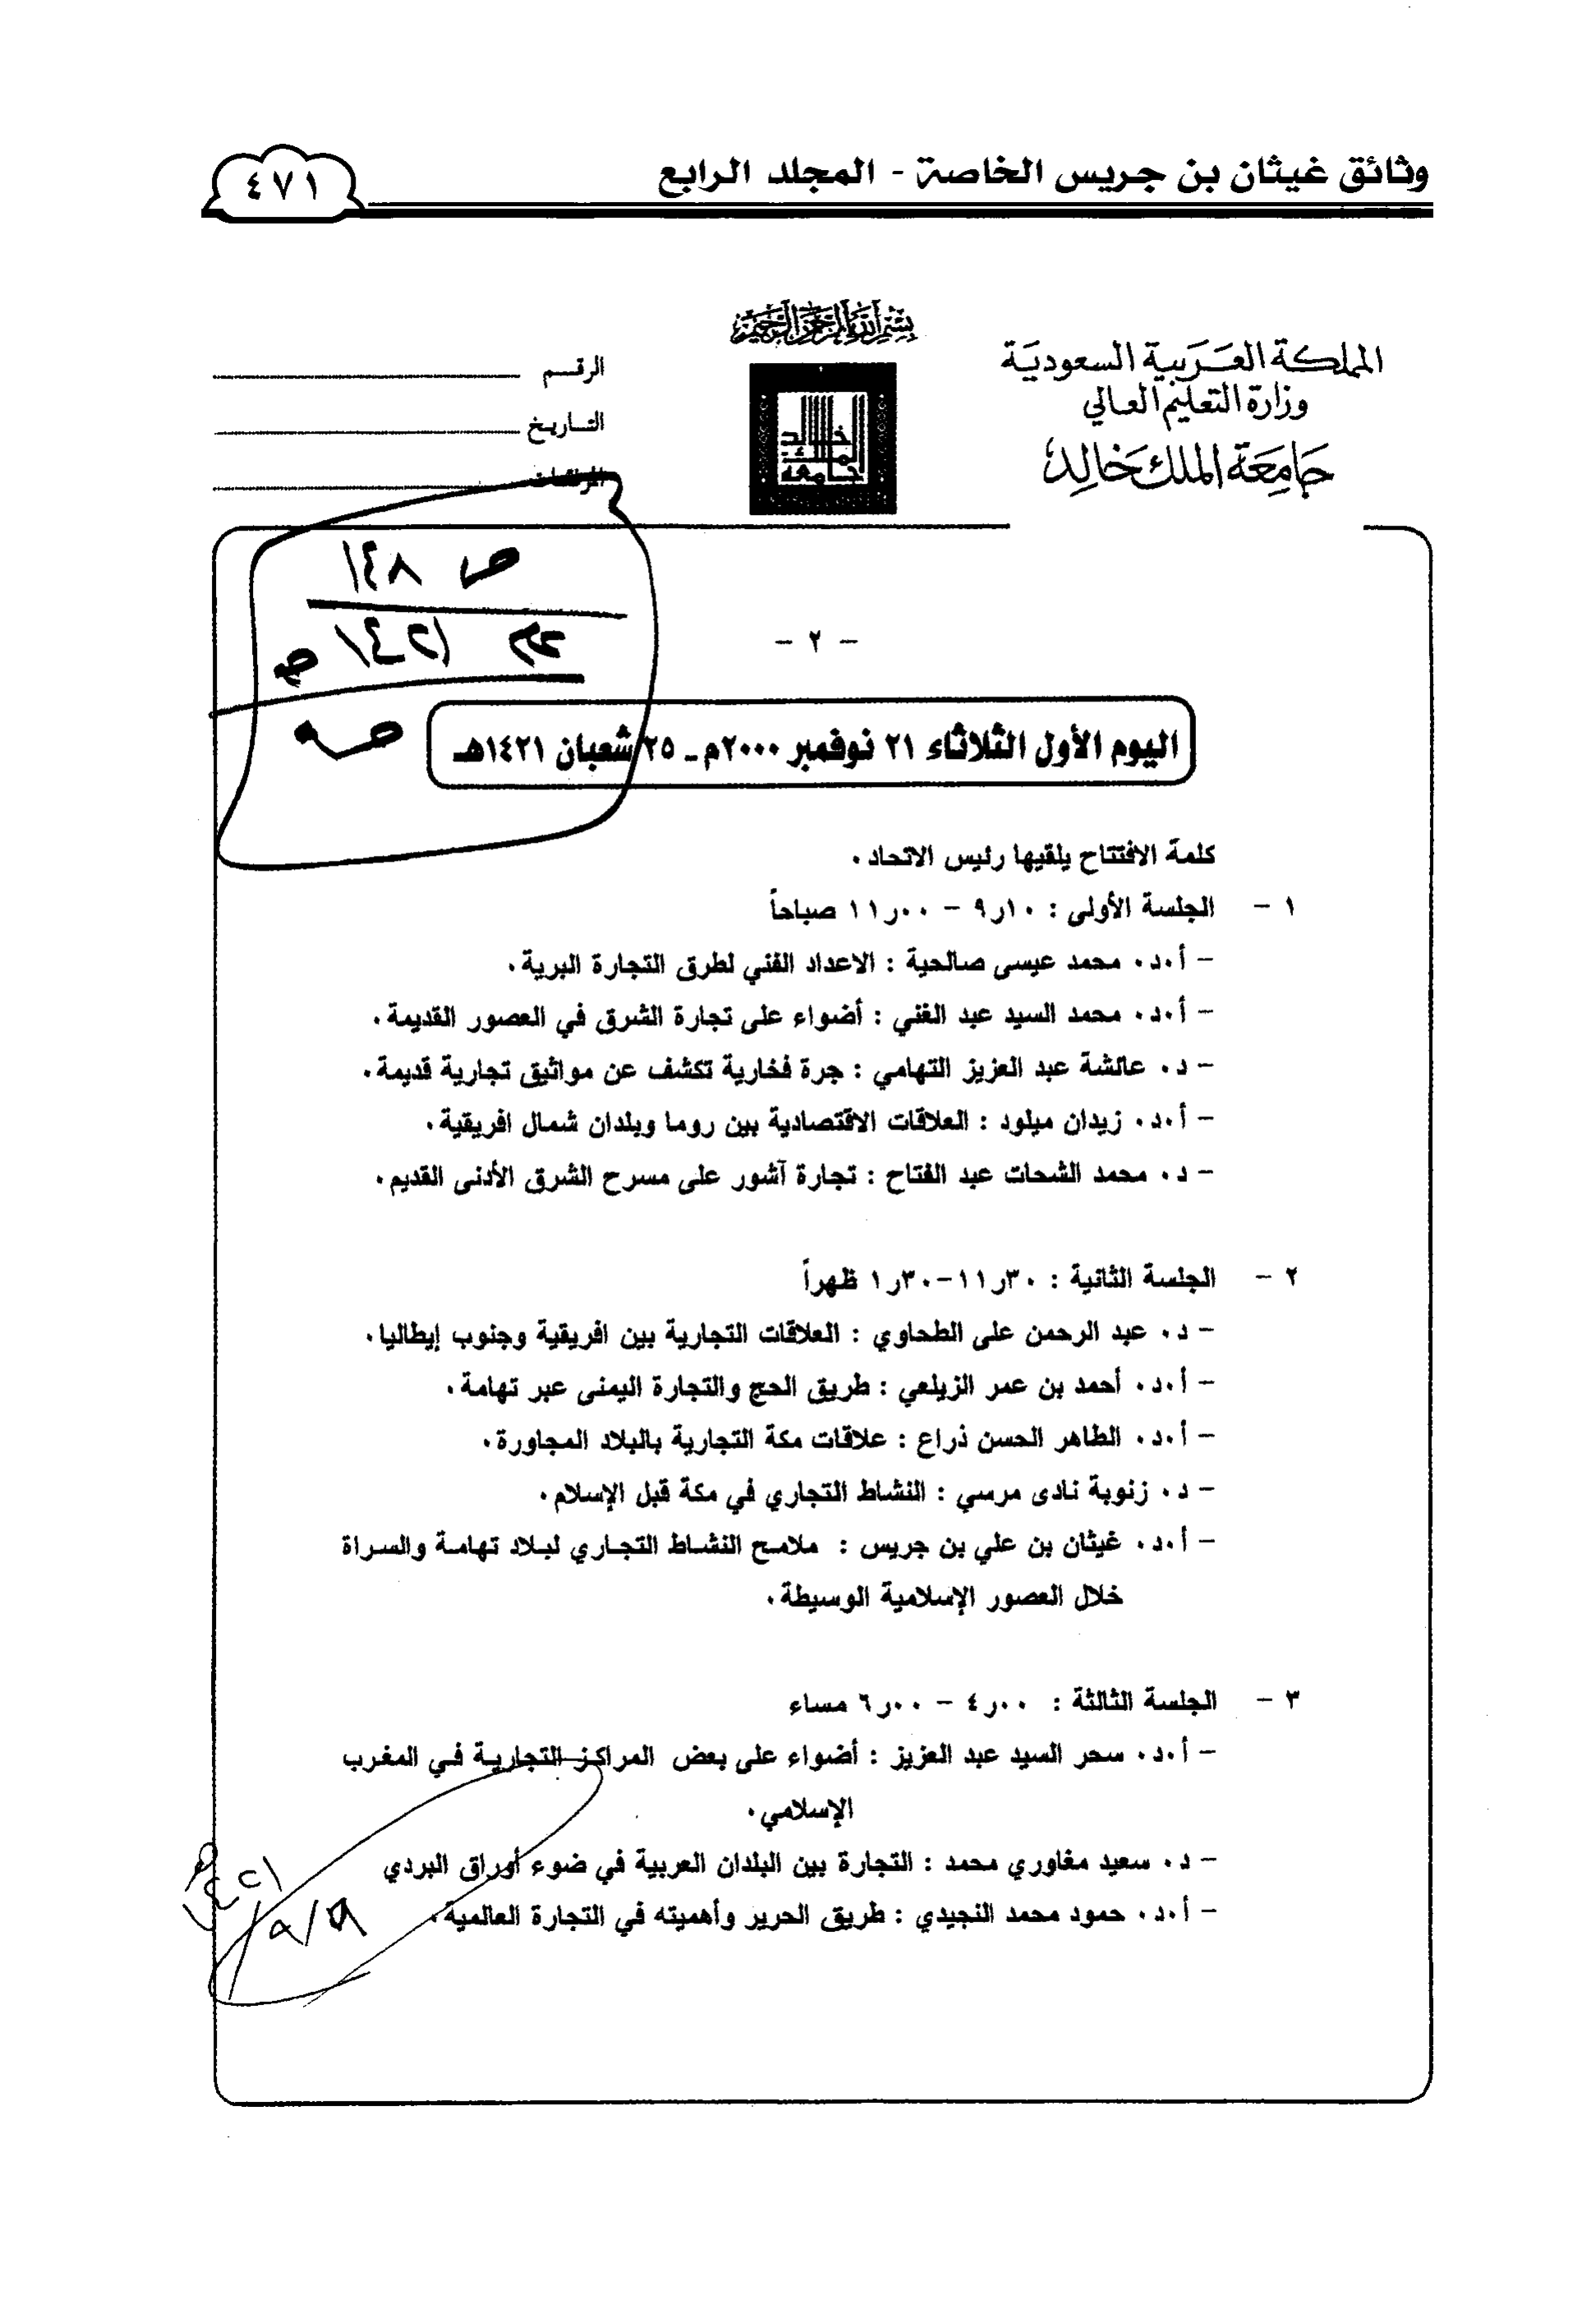 وثائق غيثان بن جريس الخاصة - المجلد الرابع
٤٧١
بسم الله الرحمن الرحيم
المملكة العربية السعودية
وزارة التعليم العالي
جامعة الملك خالد
خالد
الملك
جامعة
الرقم
التاريخ
المرفقات
ص ١٤٨
١٤٢١
- ٢ -
اليوم الأول الثلاثاء ٢١ نوفمبر ٢٠٠٠م ـ ٢٥ شعبان ١٤٢١هـ
كلمة الافتتاح يلقيها رئيس الاتحاد .
١ - الجلسة الأولى : ١٠ر٩ - ٠٠ر١١ صباحاً
- أ.د. محمد عيسى صالحية : الاعداد الفني لطرق التجارة البرية .
- أ.د. محمد السيد عبد الغني : أضواء على تجارة الشرق في العصور القديمة .
- د. عائشة عبد العزيز التهامي : جرة فخارية تكشف عن مواثيق تجارية قديمة .
- أ.د. زيدان ميلود : العلاقات الاقتصادية بين روما وبلدان شمال افريقية .
- د. محمد الشحات عبد الفتاح : تجارة آشور على مسرح الشرق الأدنى القديم .
٢ - الجلسة الثانية : ٣٠ر١١-٣٠ر١ ظهراً
- د. عبد الرحمن على الطحاوي : العلاقات التجارية بين افريقية وجنوب إيطاليا .
- أ.د. أحمد بن عمر الزيلعي : طريق الحج والتجارة اليمنى عبر تهامة .
- أ.د. الطاهر الحسن ذراع : علاقات مكة التجارية بالبلاد المجاورة .
- د. زنوبة نادى مرسي : النشاط التجاري في مكة قبل الإسلام .
- أ.د. غيثان بن علي بن جريس : ملامح النشاط التجاري لبلاد تهامة والسراة
خلال العصور الإسلامية الوسيطة .
٣ - الجلسة الثالثة : ٠٠ر٤ - ٠٠ر٦ مساء
- أ.د. سحر السيد عبد العزيز : أضواء على بعض المراكز التجارية في المغرب
الإسلامي .
- د. سعيد مغاوري محمد : التجارة بين البلدان العربية في ضوء أوراق البردي
- أ.د. حمود محمد النجيدي : طريق الحرير وأهميته في التجارة العالمية .